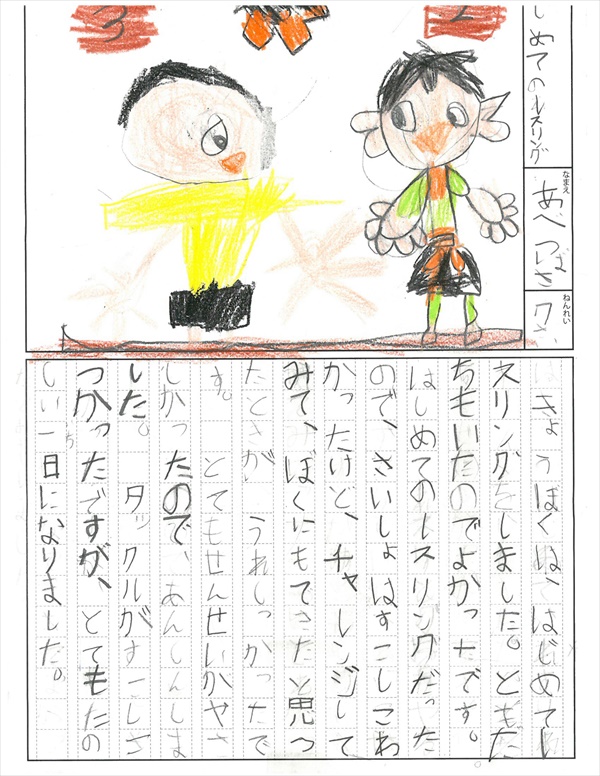 3
2
じめてのレスリング
なまえ
あべ つばさ
ねんれい
7さい
きょうぼくは、はじめてレ
スリングをしました。ともだ
ちもいたのでよかったです。
はじめてのレスリングだった
ので、さいしょはすこしこわ
かったけど、チャレンジして
みて、ぼくにもできたと思っ
たときが うれしっかったで
す。 とてもせんせいがやさ
しかったので、あんしんしま
した。 タックルがすこしき
つかったですが、とてもたの
しい一日になりました。